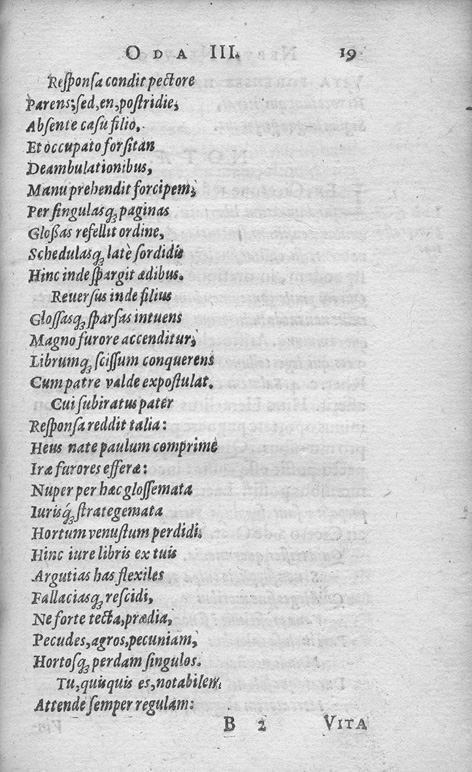 ODA III. 19
Responsa condit pectore
Parens; sed, en, postridie,
Absente casu filio,
Et occupato forsitan
Deambulationibus,
Manu prehendit forcipem,
Per singulasq; paginas
Glossas refellit ordine,
Schedulasq; latè sordidis
Hinc inde spargit ædibus.
Reuersus inde filius
Glossasq; sparsas intuens
Magno furore accenditur,
Librumq; scissum conquerens
Cum patre valde expostulat.
Cui subiratus pater
Responsa reddit talia:
Heus nate paulum comprime
Iræ furores efferæ:
Nuper per hæc glossemata
Iurisq́; strategemata
Hortum venustum perdidi,
Hinc iure libris ex tuis
Argutias has flexiles
Fallaciasq; rescidi,
Ne forte tecta, prædia,
Pecudes, agros, pecuniam,
Hortosq; perdam singulos.
Tu, quisquis es, notabilem
Attende semper regulam:
B 2 VITA